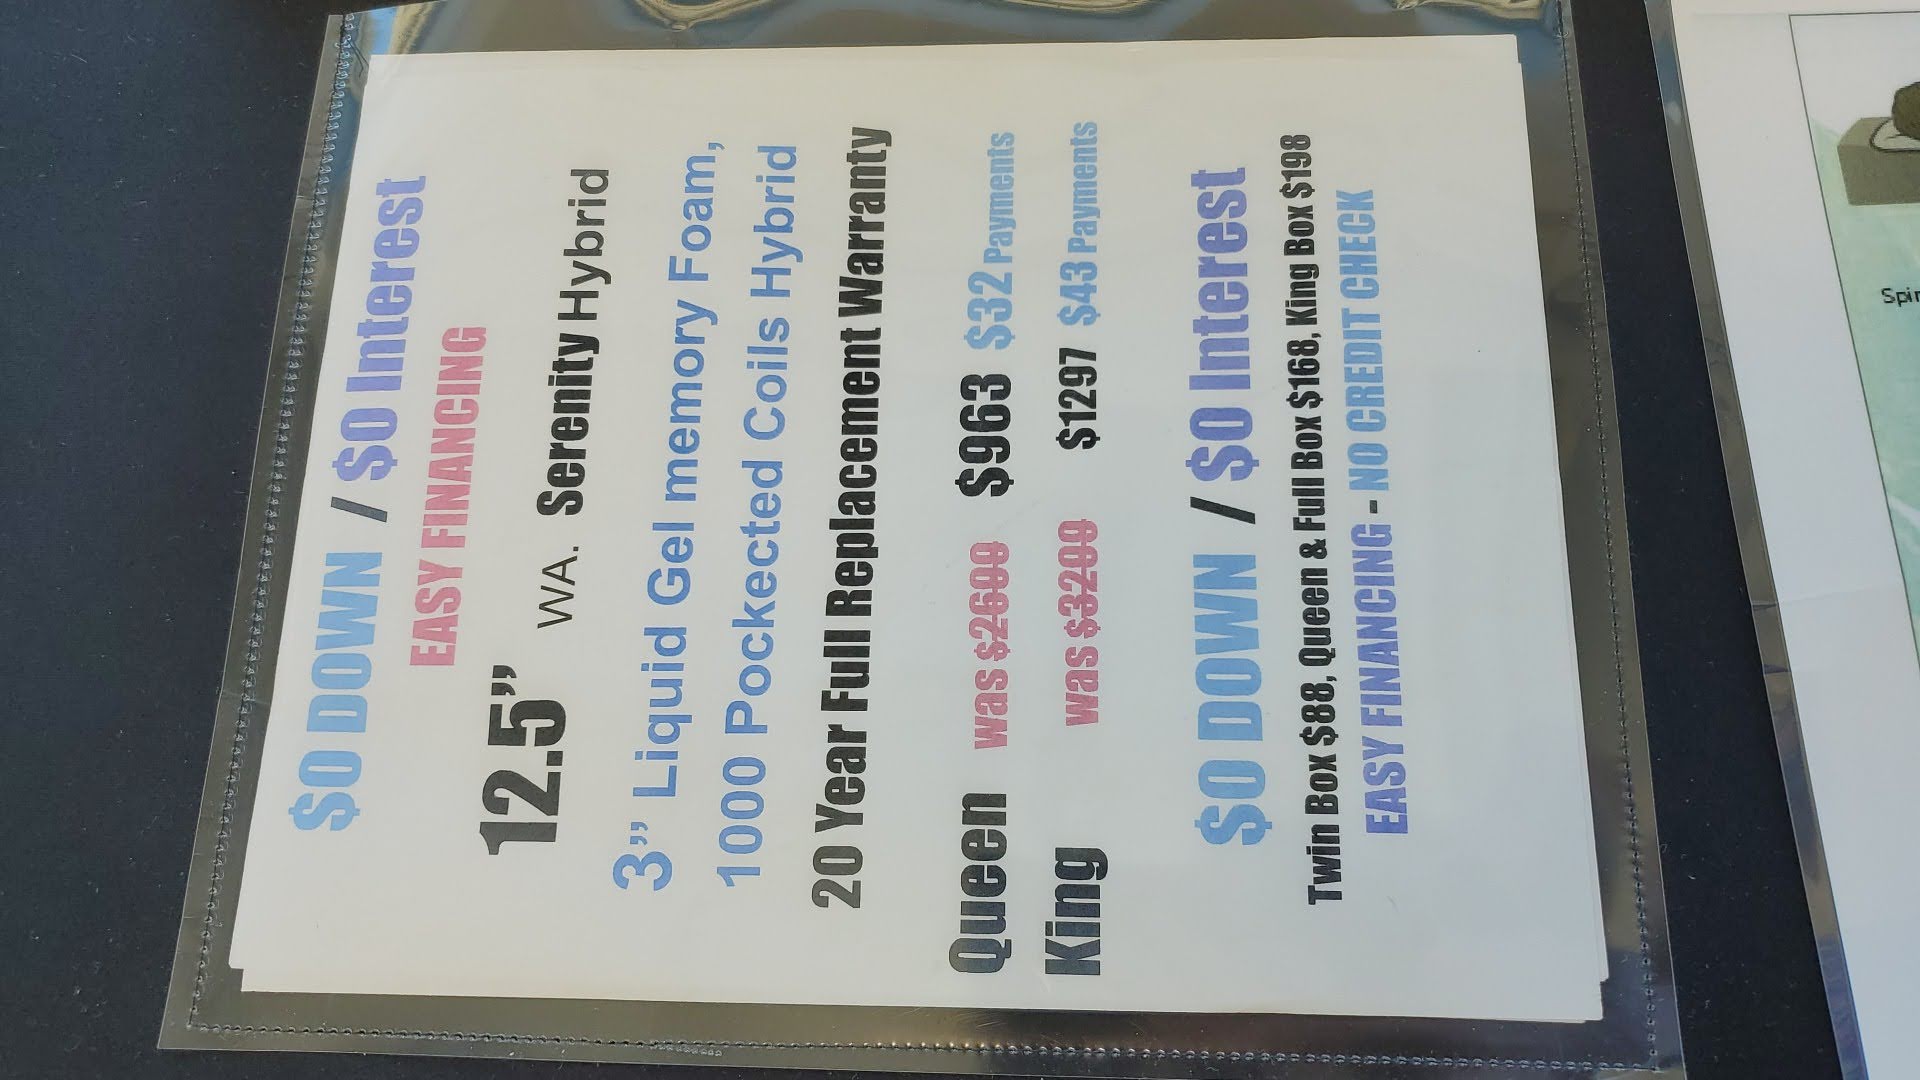 $0 DOWN / $0 Interest
EASY FINANCING
12.5” WA. Serenity Hybrid
3” Liquid Gel memory Foam,
1000 Pockected Coils Hybrid
20 Year Full Replacement Warranty
Queen was $2699 $963 $32 Payments
King was $3299 $1297 $43 Payments
$0 DOWN / $0 Interest
Twin Box $88, Queen & Full Box $168, King Box $198
EASY FINANCING - NO CREDIT CHECK